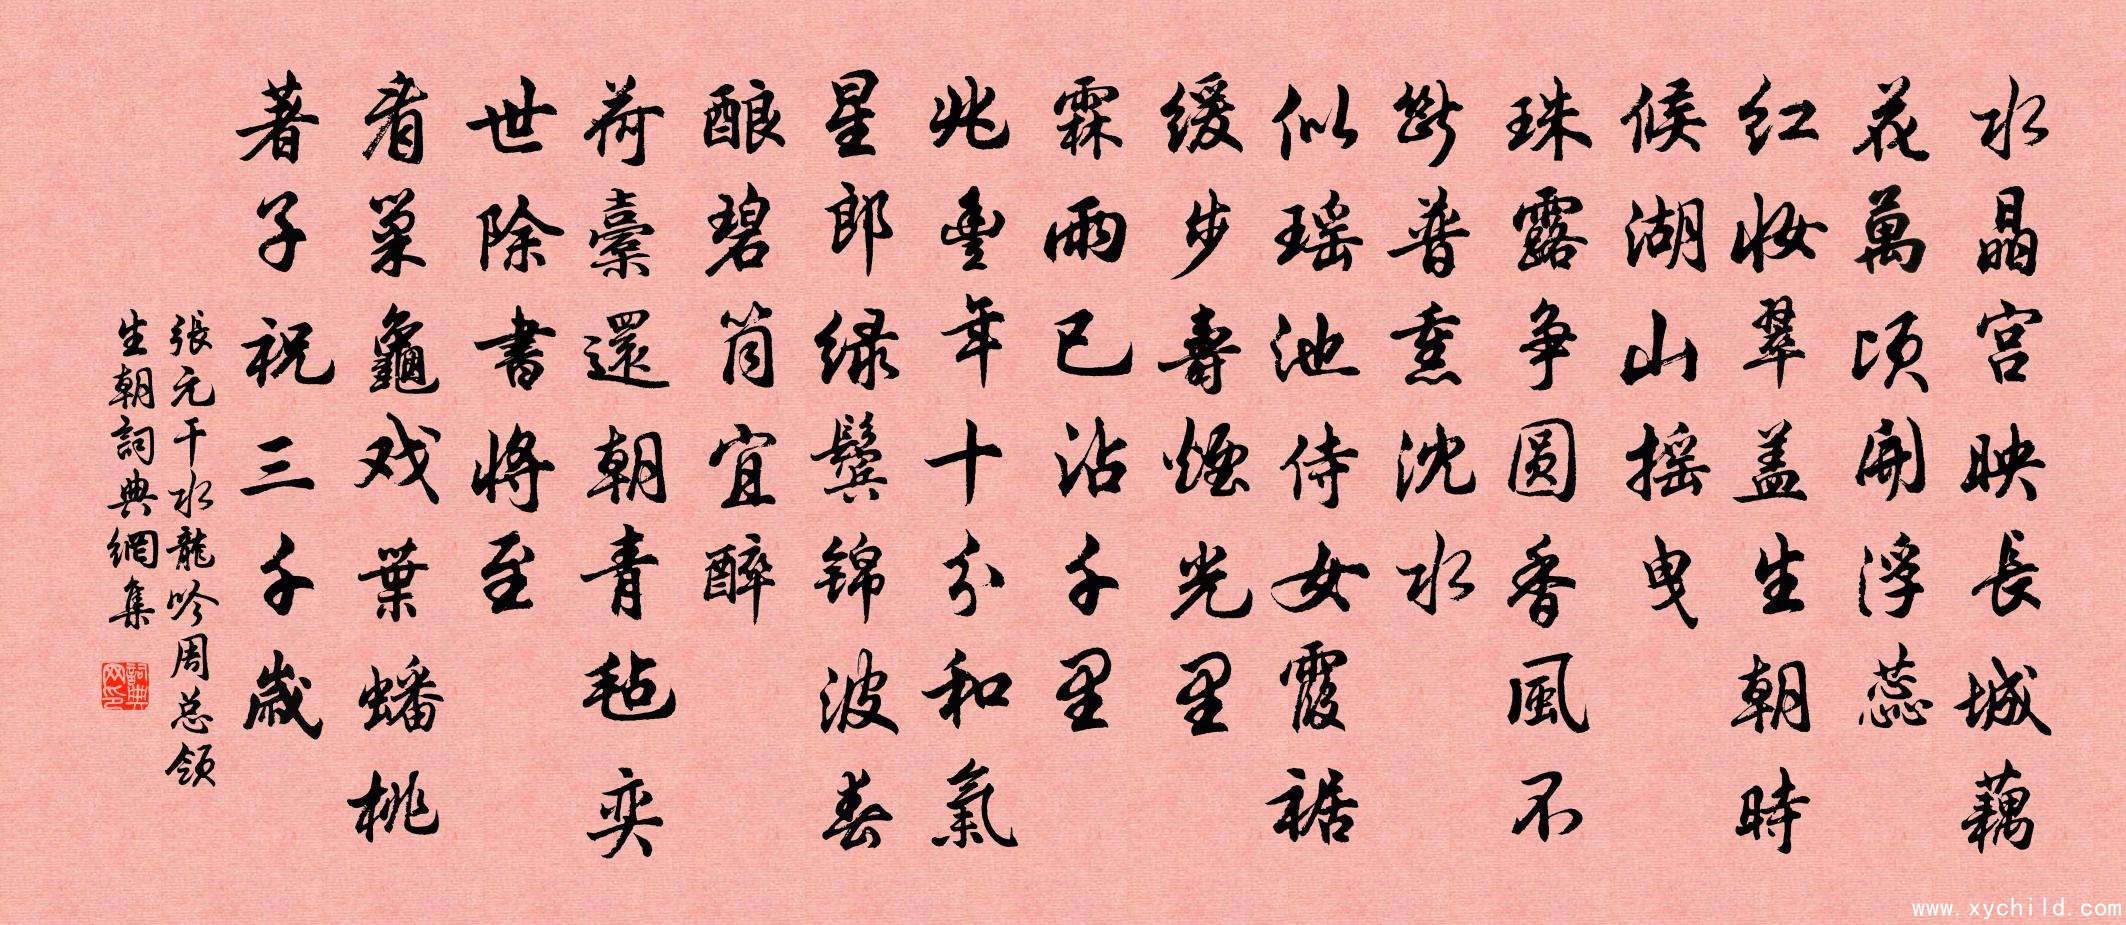 水晶宫映長城藕
花萬頃開浮蕊
红妆翠盖生朝時
候湖山摇曳
珠露争圆香風不
斷普熏沈水
似瑶池侍女霞裾
缓步壽煙光里
霖雨已沾千里
兆豐年十分和氣
星郎緑鬓锦波春
酿碧筒宜醉
荷橐還朝青毡奕
世除書將至
看巢龜戏葉蟠桃
著子祝三千歲
張元干水龍吟周总领
生朝詞典網集
詞典
网印
www.xychild.com